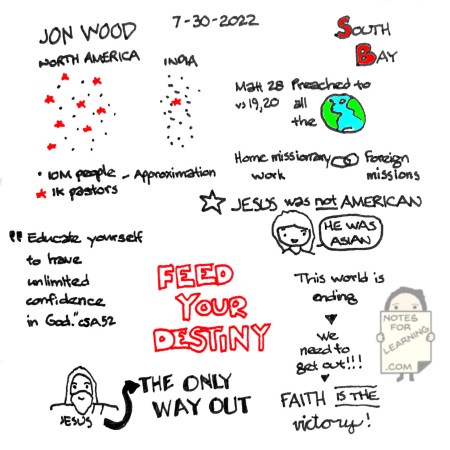 JON WOOD
7-30-2022
SOUTH
BAY
NORTH AMERICA
INDIA
• 10M people - Approximation
★ 1K pastors
Matt 28
vs 19,20
Preached to
all
the
Home missionary
work
Foreign
missions
☆ JESUS was not AMERICAN
HE WAS
ASIAN
"Educate yourself
to have
unlimited
confidence
in God." CSA 52
FEED
YOUR
DESTINY
This world is
ending
we
need to
get out!!!
FAITH IS THE
victory!
NOTES
FOR
LEARNING
.COM
JESUS
THE ONLY
WAY OUT